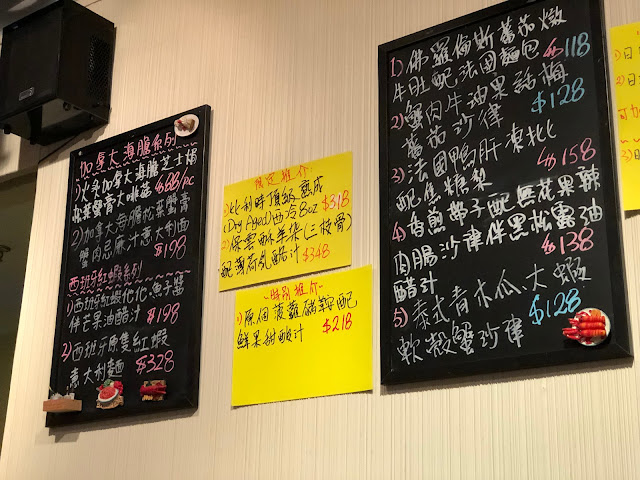 加拿大海膽系列
1) 火炙加拿大海膽芝士焗
松葉蟹膏大啡菇 $88/pc
2) 加拿大海膽松葉蟹膏
蟹肉忌廉汁意大利面
$198
西班牙紅蝦系列
1) 西班牙紅蝦他他魚子醬
伴芒果油醋汁 $198
2) 西班牙原隻紅蝦
意大利麵 $328
推介
1) 比利時頂級熟成
(Dry Aged) 西冷 8oz $318
2) 保雲酥羊架(三枝骨)
配薄荷乳酪汁 $348
~特別推介~
1) 原個菠蘿豬鞍配
鮮果甜酸汁 $218
1) 佛羅倫斯蕃茄燉
牛肚配法國麵包 $118
2) 蟹肉牛油果話梅
蕃茄沙律 $128
3) 法國鴨肝凍批
配焦糖梨 $158
4) 香煎帶子配無花果辣
肉腸沙律伴黑松露油
醋汁 $138
5) 泰式青木瓜、大蝦
軟殼蟹沙律 $128
1) 日
2) 日
可加
3)